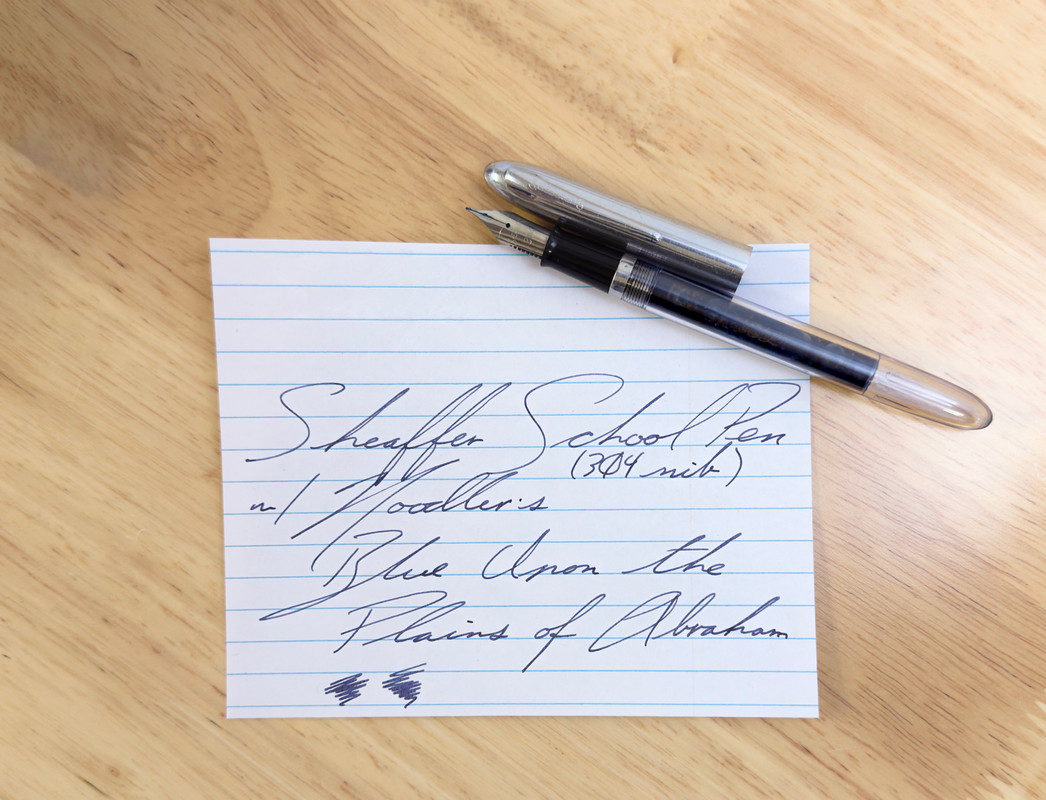 Sheaffer School Pen
(304 nib)
w/ Noodler's
Blue Upon the
Plains of Abraham